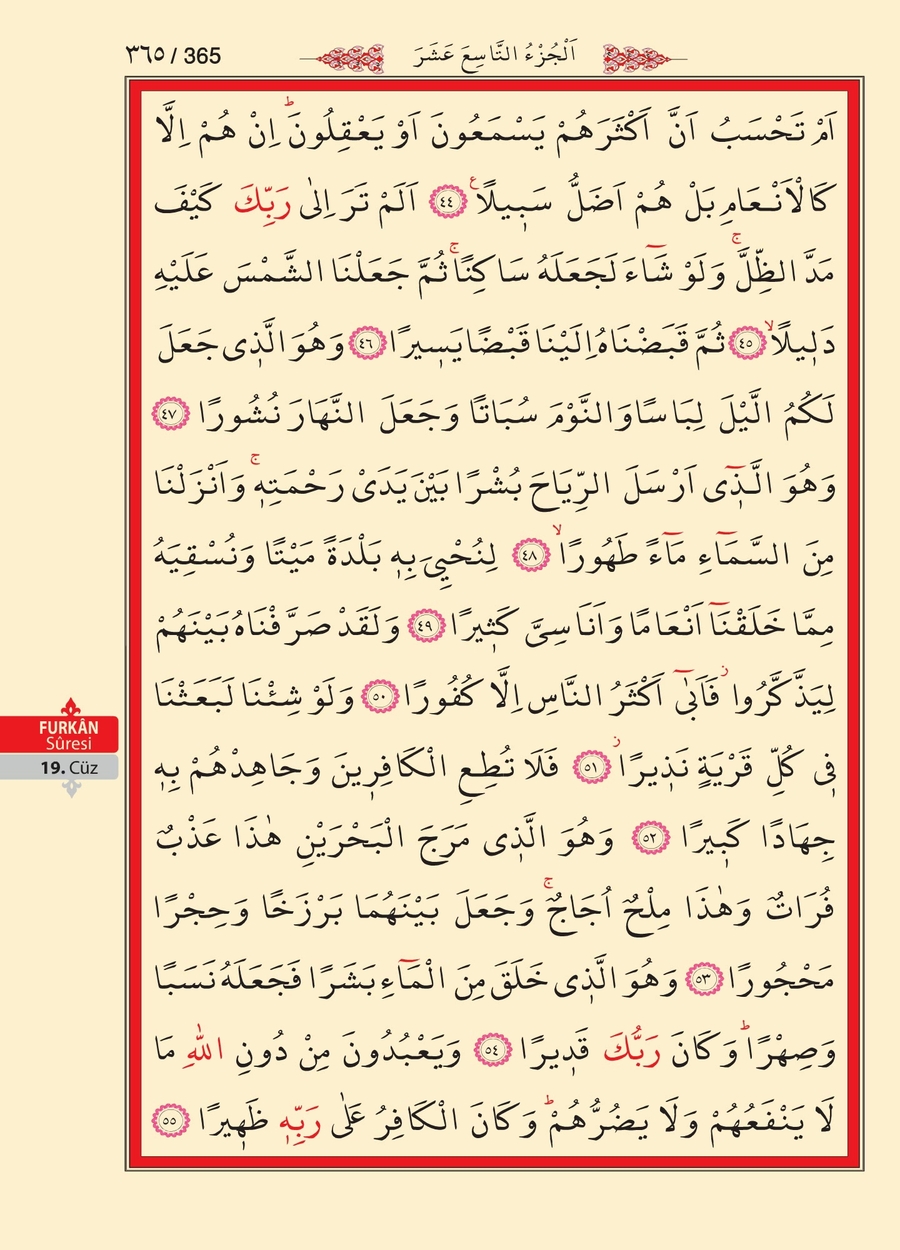 ٣٦٥ / 365
اَلْجُزْءُ التَّاسِعَ عَشَرَ
اَمْ تَحْسَبُ اَنَّ اَكْثَرَهُمْ يَسْمَعُونَ اَوْ يَعْقِلُونَۜ اِنْ هُمْ اِلَّا
كَالْاَنْعَامِ بَلْ هُمْ اَضَلُّ سَبٖيلًاࣖ ﴿٤٤﴾ اَلَمْ تَرَ اِلٰى رَبِّكَ كَيْفَ
مَدَّ الظِّلَّۚ وَلَوْ شَٓاءَ لَجَعَلَهُ سَاكِنًاۚ ثُمَّ جَعَلْنَا الشَّمْسَ عَلَيْهِ
دَلٖيلًاۙ ﴿٤٥﴾ ثُمَّ قَبَضْنَاهُ اِلَيْنَا قَبْضًا يَسٖيرًا ﴿٤٦﴾ وَهُوَ الَّذٖى جَعَلَ
لَكُمُ الَّيْلَ لِبَاسًا وَالنَّوْمَ سُبَاتًا وَجَعَلَ النَّهَارَ نُشُورًا ﴿٤٧﴾
وَهُوَ الَّذٖٓى اَرْسَلَ الرِّيَاحَ بُشْرًا بَيْنَ يَدَىْ رَحْمَتِهٖۚ وَاَنْزَلْنَا
مِنَ السَّمَٓاءِ مَٓاءً طَهُورًاۙ ﴿٤٨﴾ لِنُحْيِىَ بِهٖ بَلْدَةً مَيْتًا وَنُسْقِيَهُ
مِمَّا خَلَقْنَٓا اَنْعَامًا وَاَنَاسِىَّ كَثٖيرًا ﴿٤٩﴾ وَلَقَدْ صَرَّفْنَاهُ بَيْنَهُمْ
لِيَذَّكَّرُواؗ فَاَبٰٓى اَكْثَرُ النَّاسِ اِلَّا كُفُورًا ﴿٥٠﴾ وَلَوْ شِئْنَا لَبَعَثْنَا
فٖى كُلِّ قَرْيَةٍ نَذٖيرًاؗ ﴿٥١﴾ فَلَا تُطِعِ الْكَافِرٖينَ وَجَاهِدْهُمْ بِهٖ
جِهَادًا كَبٖيرًا ﴿٥٢﴾ وَهُوَ الَّذٖى مَرَجَ الْبَحْرَيْنِ هٰذَا عَذْبٌ
فُرَاتٌ وَهٰذَا مِلْحٌ اُجَاجٌۚ وَجَعَلَ بَيْنَهُمَا بَرْزَخًا وَحِجْرًا
مَحْجُورًا ﴿٥٣﴾ وَهُوَ الَّذٖى خَلَقَ مِنَ الْمَٓاءِ بَشَرًا فَجَعَلَهُ نَسَبًا
وَصِهْرًاۜ وَكَانَ رَبُّكَ قَدٖيرًا ﴿٥٤﴾ وَيَعْبُدُونَ مِنْ دُونِ اللّٰهِ مَا
لَا يَنْفَعُهُمْ وَلَا يَضُرُّهُمْۜ وَكَانَ الْكَافِرُ عَلٰى رَبِّهٖ ظَهٖيرًا ﴿٥٥﴾
FURKÂN
Sûresi
19. Cüz